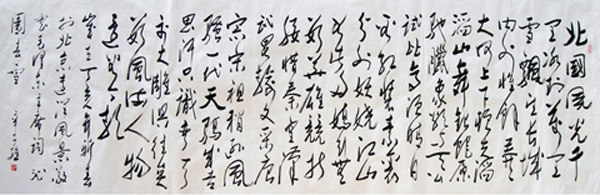 北國風光千
里冰封萬里
雪飄望長城
内外惟餘莽莽
大河上下頓失滔
滔山舞銀蛇原
馳臘象欲與天公
試比高須晴日
看紅裝素裹
分外妖嬈江山
如此多嬌引無
數英雄競折
腰惜秦皇漢
武略輸文采唐
宗宋祖稍遜風
騷一代天驕成吉
思汗只識彎弓
射大雕俱往矣
數風流人物
還看今朝
歲在丁亥年新春
於北京
書毛澤東主席詞沁
園春雪